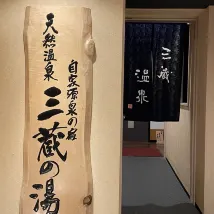 自家源泉の宿
天然温泉
三蔵の湯
三蔵
温泉